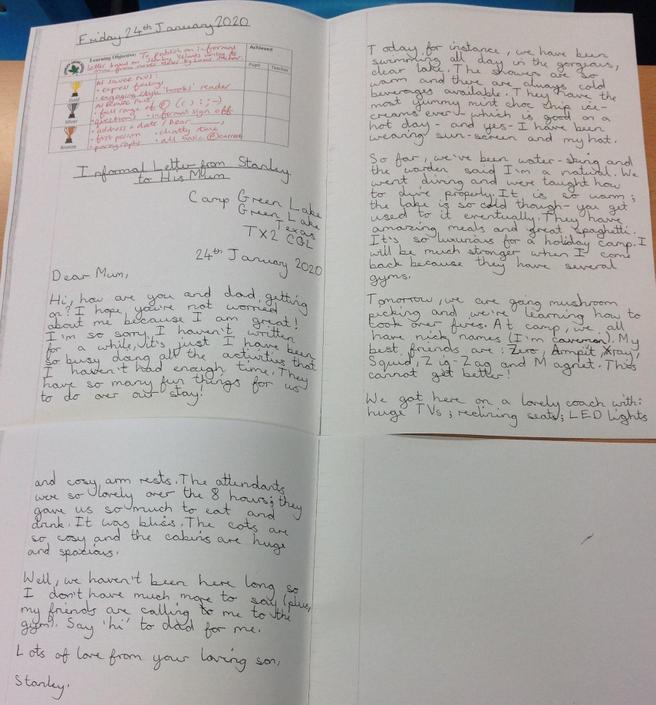 Friday 24th January 2020
Learning Objective: To publish an informal
letter based on Stanley Yelnats writing to
Achieved
Pupil
Teacher
Gold
• express feelings
• engaging style 'hooks' reader
Silver
• full range of P ( () : ; - )
• questions • informal sign off
Bronze
• address + date / Dear
• first person • chatty tone
• paragraphs
Informal Letter from Stanley
to His Mum
Camp Green Lake
Green Lake
Texas
TX2 CGL
24th January 2020
Dear Mum,
Hi, how are you and dad getting
on? I hope you're not worried
about me because I am great!
I'm so sorry I haven't written
for a while, it's just I have been
so busy doing all the activities that
I haven't had enough time. They
have so many fun things for us
to do over our stay!
Today for instance, we have been
swimming all day in the gorgious,
clear lake. The showers are so
warm and there are always cold
beverages available. They have the
most yummy mint choc chip ice-
creams ever - which is good on a
hot day - and yes - I have been
wearing sun-screen and my hat.
So far, we've been water-skiing and
the warden said I'm a natural. We
went diving and were taught how
to dive properly. It is so warm;
the lake is so cold though - you get
used to it eventually. They have
amazing meals and great spaghetti.
It's so luxurious for a holiday camp. I
will be much stronger when I come
back because they have several
gyms.
Tomorrow, we are going mushroom
picking and we're learning how to
cook over fires. At camp, we all
have nick names (I'm caveman). My
best friends are: Zero, Armpit, Xray,
Squid, Zig-Zag and Magnet. This
cannot get better!
We got here on a lovely coach with:
huge TVs; reclining seats; LED lights
and cosy arm rests. The attendants
were so lovely over the 8 hours; they
gave us so much to eat and
drink. It was bliss. The cots are
so cosy and the cabins are huge
and spacious.
Well, we haven't been here long so
I don't have much more to say (plus,
my friends are calling to me to the
gym). Say 'hi' to dad for me.
Lots of love from your loving son,
Stanley.